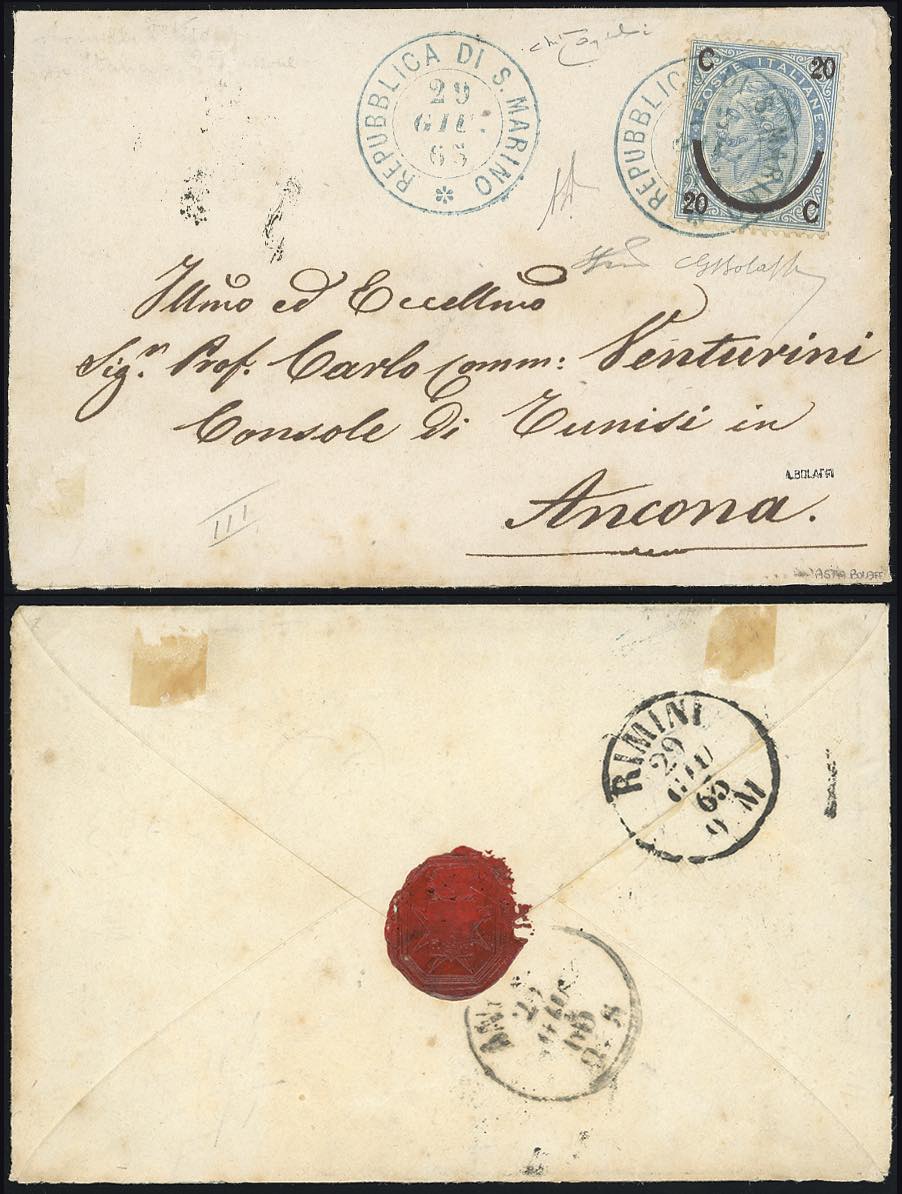 REPUBBLICA DI S. MARINO
29
GIU.
65
REPUBBLICA
S. MARINO
C 20
POSTE ITALIANE
20 C
GBolaffi
Illmo ed Eccellmo
Sig.r Prof. Carlo Comm: Venturini
Console di Tunisi in
A. BOLAFFI
Ancona.
III
ASTA BOLAFFI
RIMINI
29
GIU
65
9 M
AN
GIU